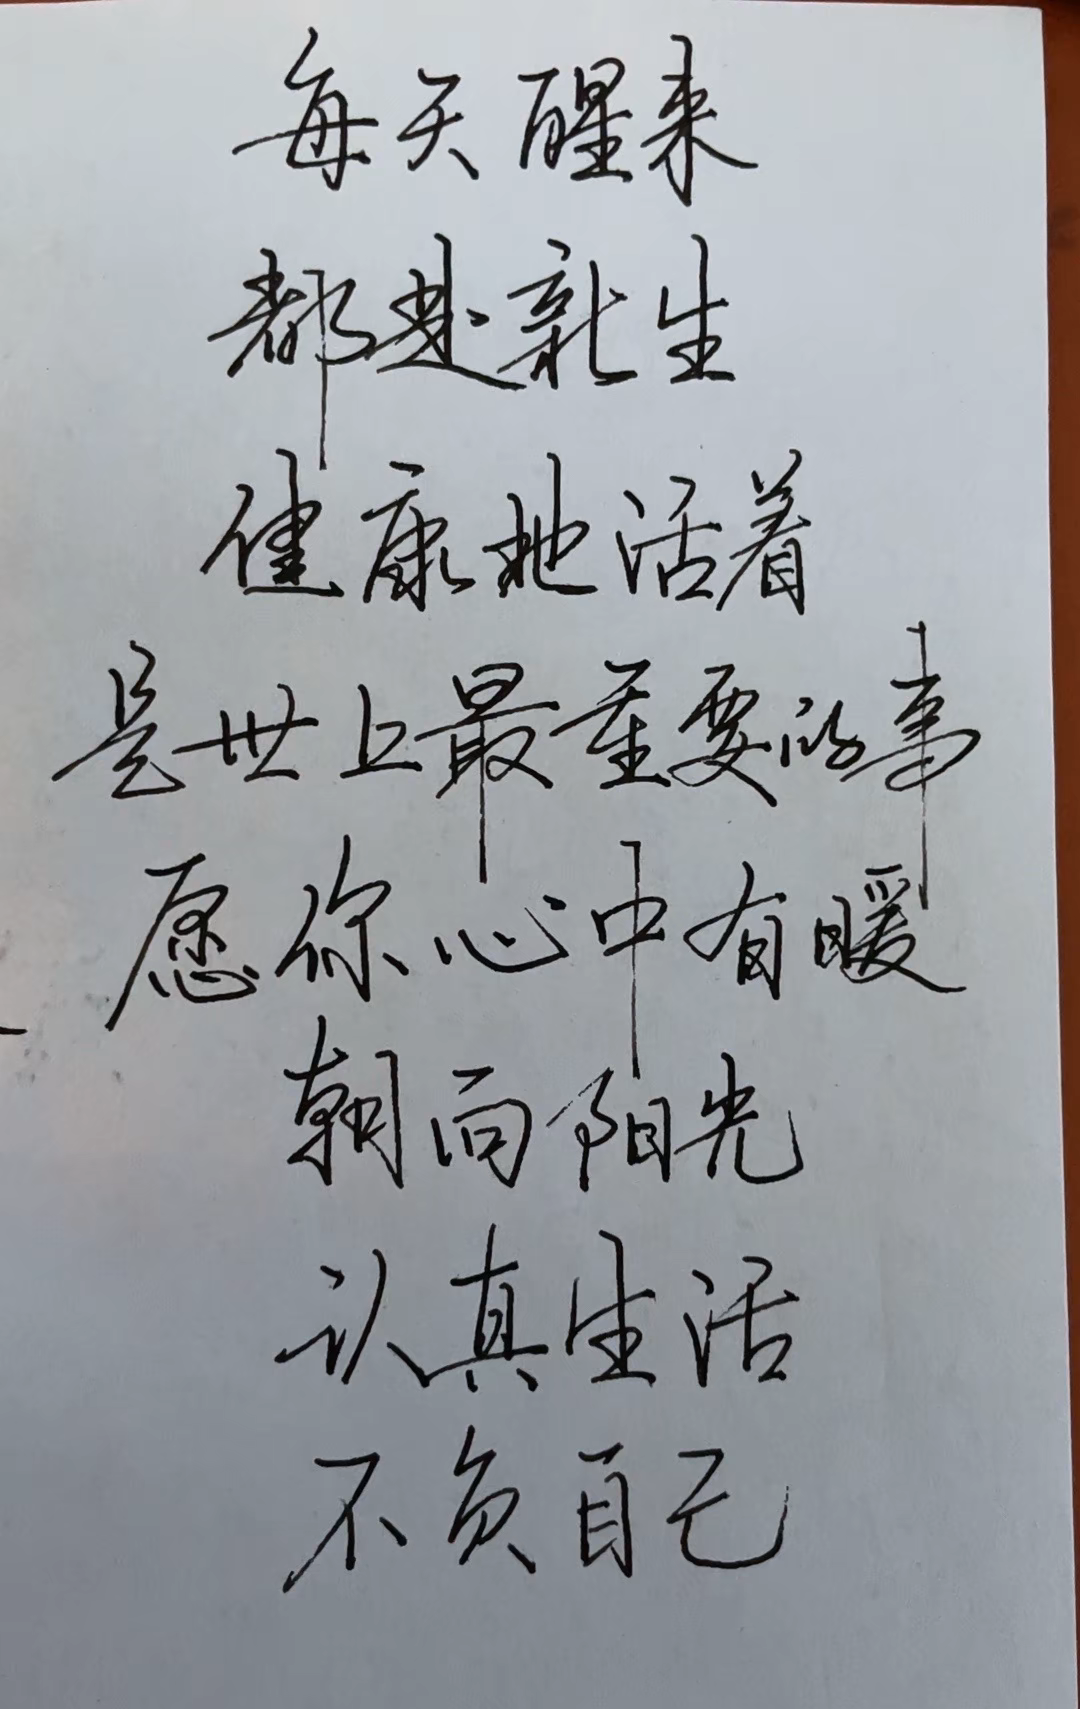 每天醒来
都是新生
健康地活着
是世上最重要的事
愿你心中有暖
朝向阳光
认真生活
不负自己